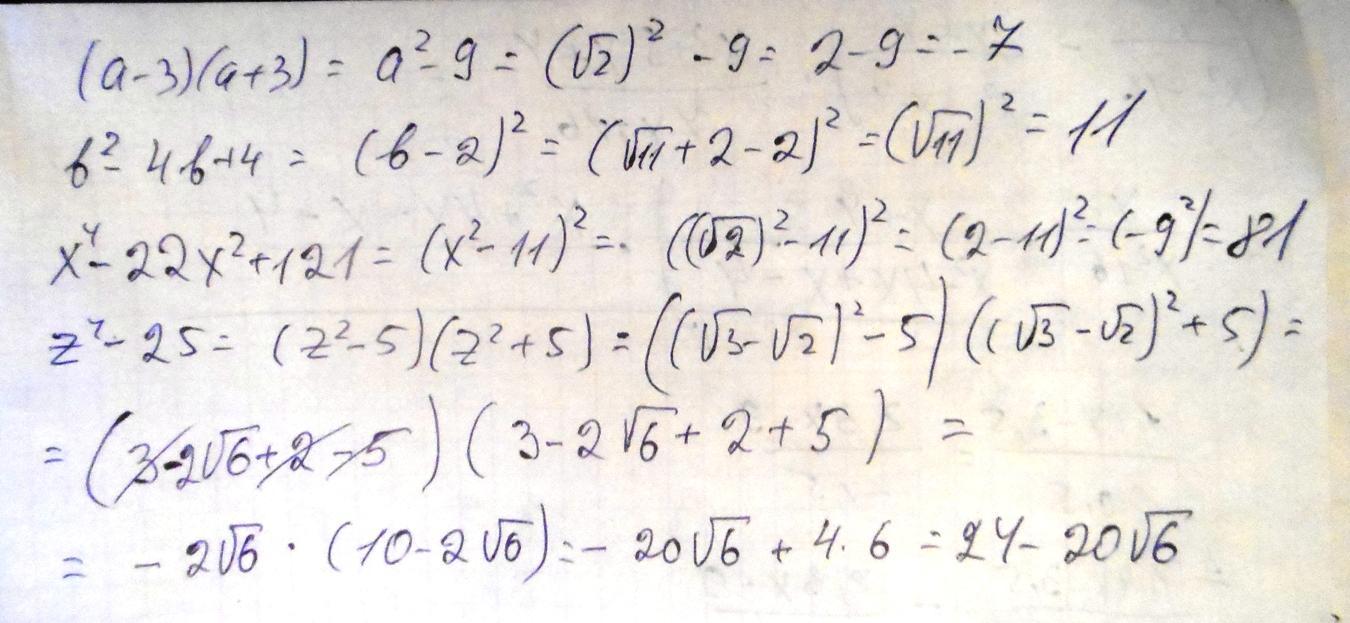 (a-3)(a+3) = a²-9 = (√2)² - 9 = 2-9 = -7
b²- 4b+4 = (b-2)² = (√11+2-2)² = (√11)² = 11
x⁴- 22x²+121 = (x²-11)² = ((√2)²-11)² = (2-11)² = (-9²) = 81
z⁴- 25 = (z²-5)(z²+5) = ((√3-√2)²-5)((√3-√2)²+5) =
= (3-2√6+2-5)(3-2√6+2+5) =
= -2√6 · (10-2√6) = - 20√6 + 4·6 = 24- 20√6